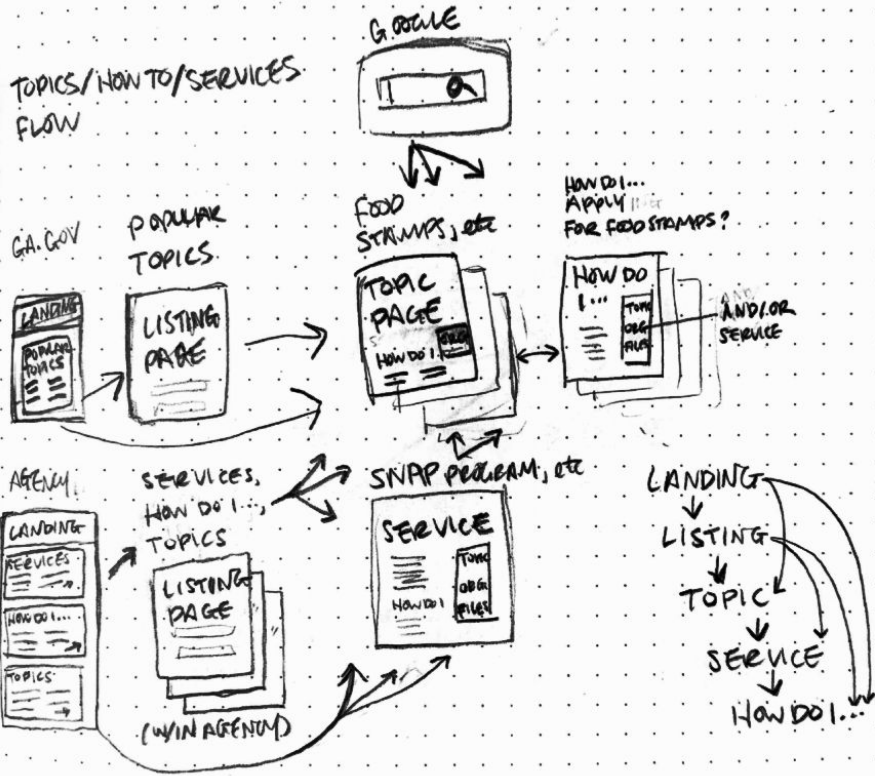 GOOGLE
TOPICS/HOW TO/SERVICES
FLOW
GA.GOV
POPULAR
TOPICS
LANDING
POPULAR
TOPICS
LISTING
PAGE
FOOD
STAMPS, etc
TOPIC
PAGE
ORG
HOW DO I...
HOW DO I...
APPLY
FOR FOOD STAMPS?
HOW DO
I...
TOPIC
ORG
FILES
AND/OR
SERVICE
AGENCY
LANDING
SERVICES
HOW DO I...
TOPICS
SERVICES,
HOW DO I...,
TOPICS
LISTING
PAGE
(W/IN AGENCY)
SNAP PROGRAM, etc
SERVICE
HOW DO I
TOPIC
ORG
FILES
LANDING
LISTING
TOPIC
SERVICE
HOW DO I...